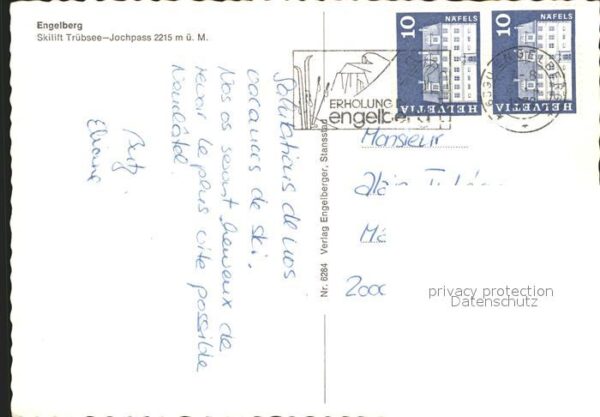 Engelberg
Skilift Trübsee—Jochpass 2215 m ü. M.
Salutations de nos
vacances de ski.
Nos os seront heureux de
revoir le plus vite possible
Neuchâtel.
Nr. 6264 Verlag Engelberger, Stansstad
ERHOLUNG
engelberg
10
NÄFELS
HELVETIA
10
NÄFELS
HELVETIA
6390 ENGELBERG
Monsieur
Alain
2000
privacy protection
Datenschutz